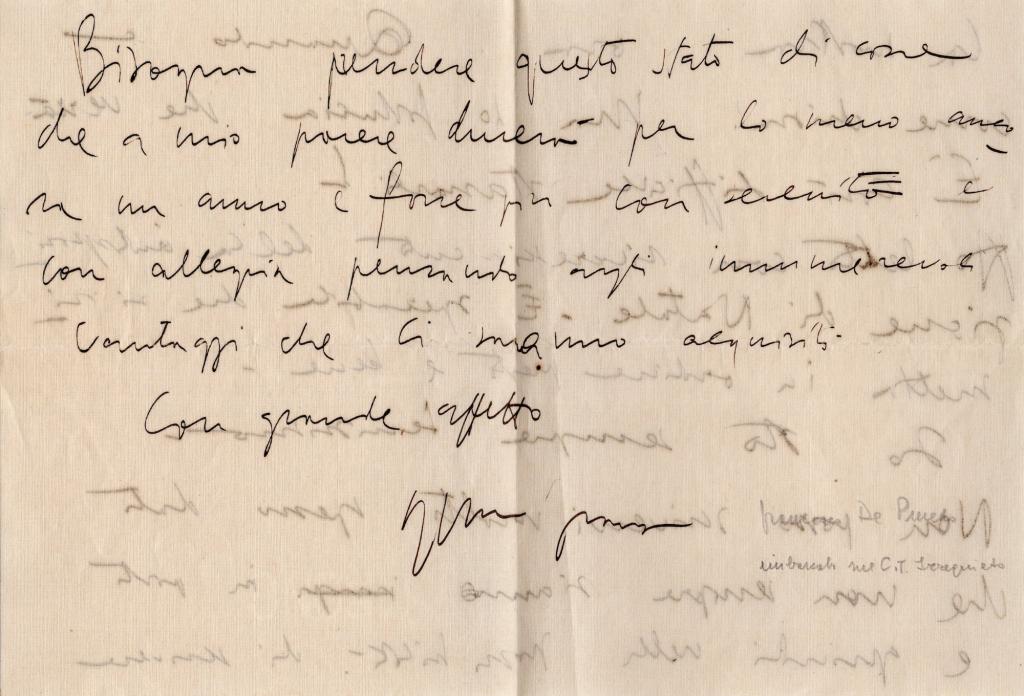 Bisogna prendere questo stato di cose
che a mio parere durerà per lo meno anco
ra un anno e forse più con serenità e
con allegria pensando agli innumerevoli
vantaggi che ci saranno acquisiti.
Con grande affetto
De
imbarcato nel C.T.